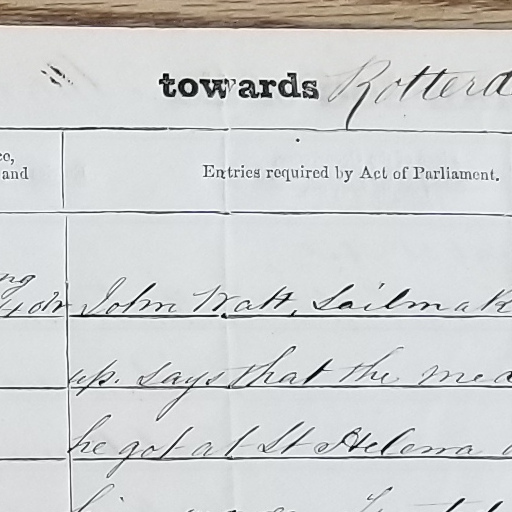 towards Rotterd
ce,
and
Entries required by Act of Parliament.
ng
John Watt, Sailmak
up. says that the med
he got at St Helena